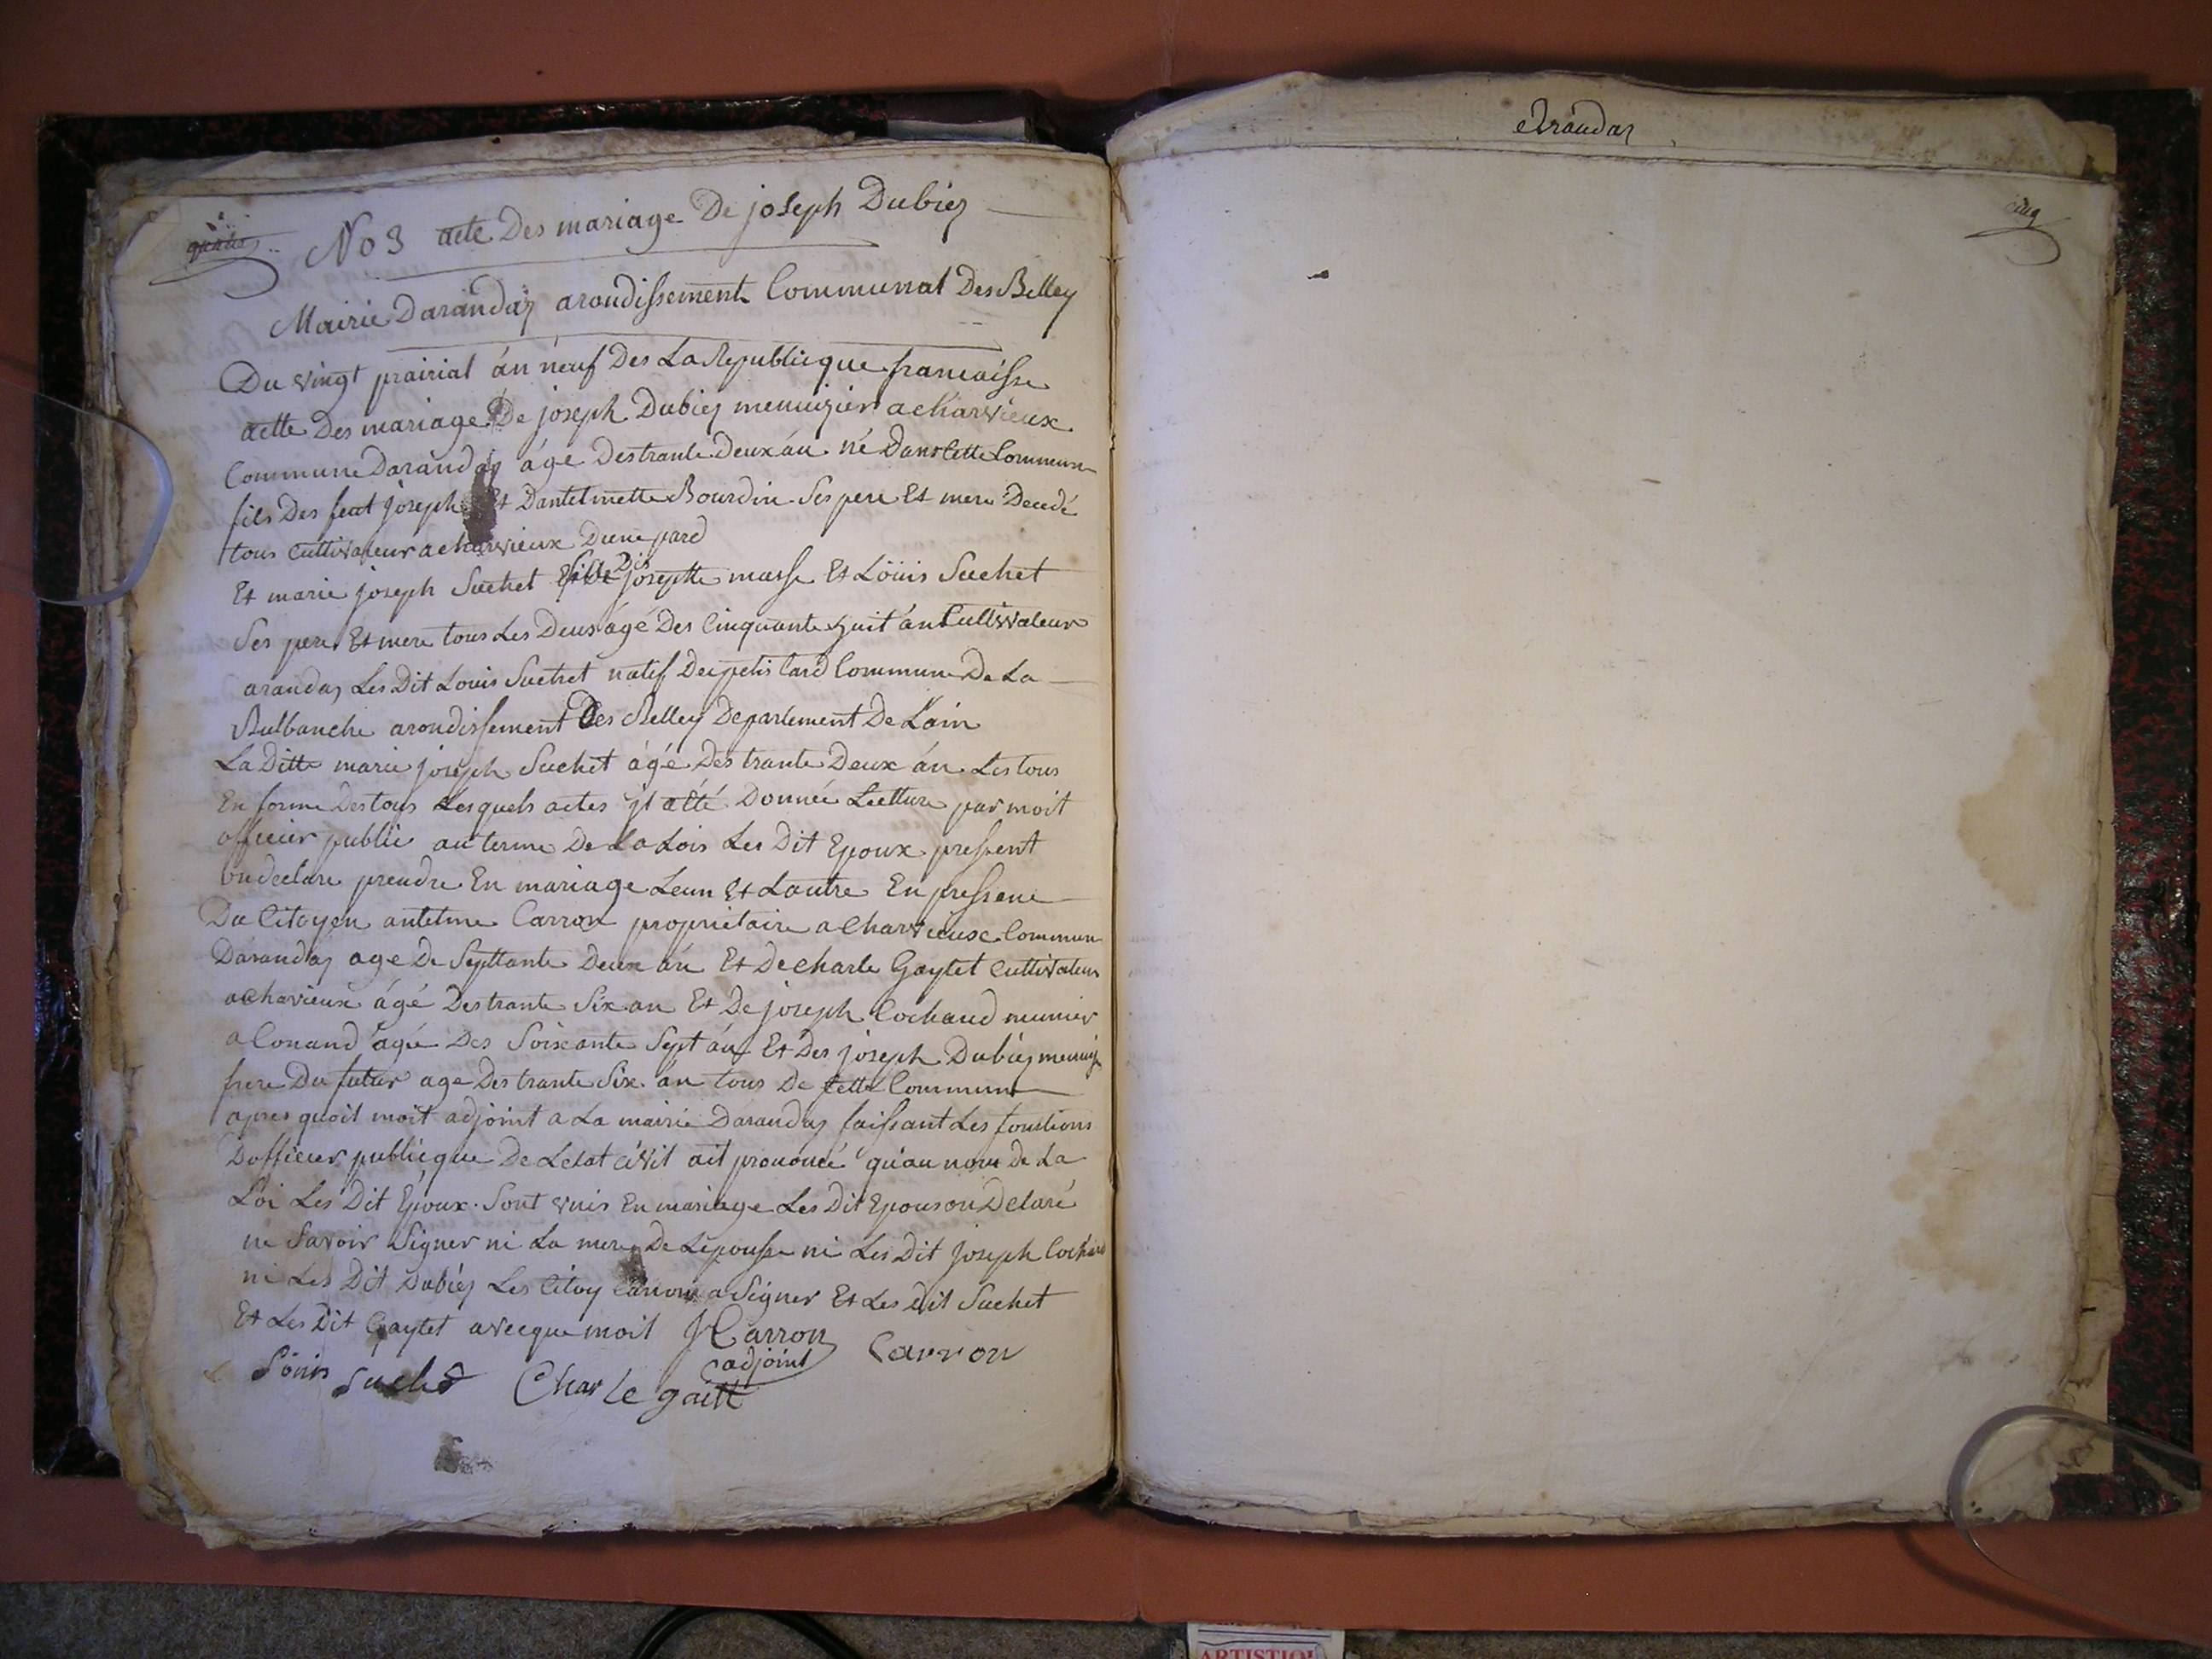 No 3 acte Des mariage De joseph Dubiez
Mairie Darandaz arondissement Communal Des Belley
Du vingt prairial án neuf Des La Republicque francaisse
actte Des mariage De joseph Dubiez menuizier a charvieux
Commune Darandaz áge Des trante Deux án né Dans Cette Commun
fils Des feat joseph Et Dantelmette Bourdin Ses pere Et mere Decedé
tous Cultivateur a charvieux Dune pard
Et marie joseph Suchet josepte masse Et Loüis Suchet
Ses pere Et mere tous Les Deus ágé Des Cinquante huit án Cultivateur
arandaz Les Dit Louis Suchet natif De Commune De La
Bulbanche arondissement Des Belley Departement De Lain
La Ditte marie joseph Suchet ágé Des trante Deux án Les tous
En forme Des tous Lesquels actes jl atté Donnée Lectture par moit
officier public au terme De La Lois Les Dit Epoux pressent
declare prendre En mariage Leun Et Lautre En pressene
Du Citoyen antelme Carron proprietaire a Charvieuxe Commun
Darandaz age De Septtante Deux án Et De charle Gaytet Cultivateur
a Chavieux ágé Des trante Six an Et De joseph Cochaud munier
a Conand agée Des Soixante Sept án Et Des joseph Dubiez menuiz
frere Du futur age Des trante Six án tous De Cette Commune
apres quoit moit adjoint a La mairie Darandaz faissant Les fonctions
Dofficier publicque De Letat civil ait prononcé qu'au nom de La
Loi Les Dit Epoux Sont vnis En mariage Les Dit Epous on Delaré
ne Savoir Signer ni La mere De Lepousse ni Les Dit joseph Cochaud
ni Les Dit Dubiez Les Citoy Carron a Signer Et Les dit Suchet
Et Les Dit Gaytet avecque moit JCarron
adjoint Carron
Loüis Suchet Charle gaitt
arandaz
cinq
ARTISTIQU